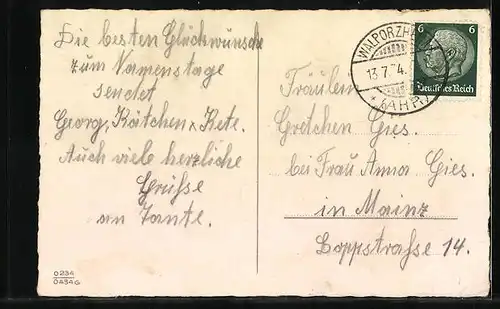 Die besten Glückwünsche
zum Namenstage
sendet
Georg, Kätchen & Kete.
Auch viele herzliche
Grüsse
an Tante.
0234
0434G
WALPORZHEIM
13.7.34.
(AHR)
6 6
Deutsches Reich
Fräulein
Gretchen Gies.
bei Frau Anna Gies.
in Mainz
Boppstraße 14.